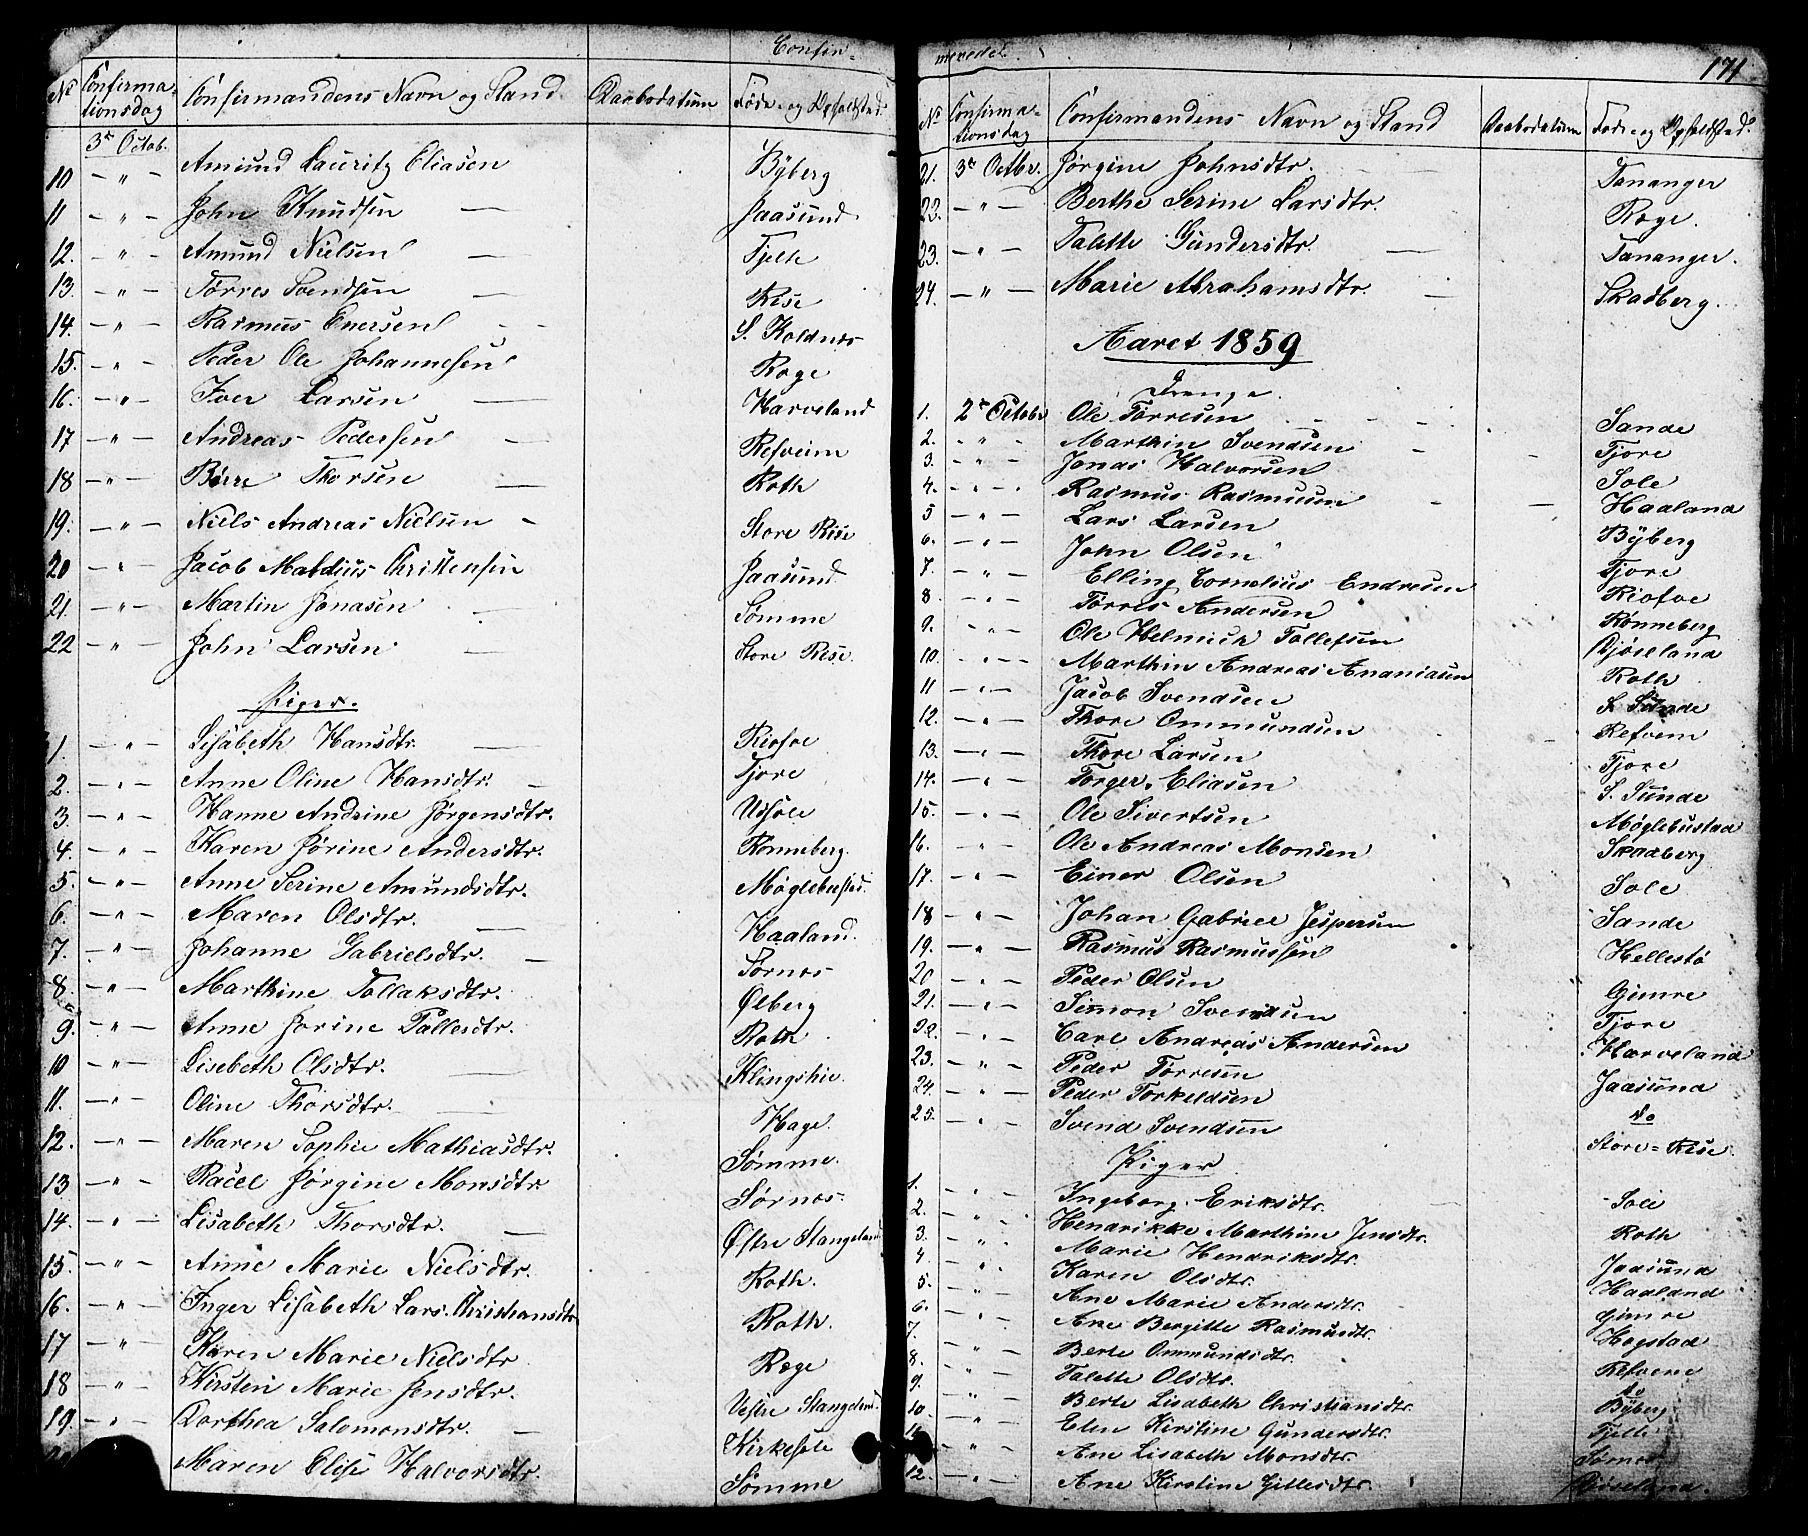 Confir-
No Confirma-tionsdag Confirmandens Navn og Stand Daabsdatum Føde- og Opholdsted.
3e Octob.
10 — " — Amund Lauritz Eliasen Byberg
11 — " — John Knudsen — Jaasund
12. — " — Amund Nielsen — Tjelte
13. — " — Tørres Svendsen — Rise
14. — " — Rasmus Enersen S. Koldnes
15. — " — Peder Ole Johannesen Røge
16. — " — Iver Larsen — Harveland
17 — " — Andreas Pedersen — Refveim
18 — " — Børre Thorsen — Roth
19. — " — Niels Andreas Nielsen - Store Rise
20 — " — Jacob Mathius Christensen Jaasund
21 — " — Martin Jonasen — Sømme
22 — " — John Larsen — Store Rise.
Piger.
1. — " — Lisabeth Hansdtr. — Riofve
2. — " — Anne Oline Hansdtr. — Tjore
3 — " — Hanne Andrine Jørgensdtr. Udsole
4. — " — Karen Jorine Andersdtr. Rønneberg.
5. — " — Anne Serine Amundsdtr. Møglebusted.
6. — " — Maren Olsdtr. — Haaland.
7. — " — Johanne Gabrielsdtr. — Sørnes
8. — " — Marthine Tollaksdtr. Ølberg
9. — " — Anne Jorine Pallesdtr. Roth
10 — " — Lisebeth Olsdtr. — Klingshie.
11. — " — Oline Thorsdtr. — Hage.
12. — " — Maren Sophie Mathiasdtr. Sømme.
13 — " — Racel Jørgine Monsdtr. Sørnes
14. — " — Lisabeth Thorsdtr. — Østre Stangeland
15. — " — Anne Marie Nielsdtr. Roth.
16. — " — Inger Lisabeth Lars. Christiansdtr. Roth.
17 — " — Karen Marie Nielsdtr Røge
18 — " — Kirsten Marie Jensdtr. Vestre Stangeland
19. — " — Dorthea Salomonsdtr. — Kirkesole
Maren Elise Halvorsdtr. Sømme
meredel. 171.
No Confirma-tionsdag Confirmandens Navn og Stand Daabsdatum Føde- og Opholdsted.
21. 3e Octbr. Jørgine Johnsdtr. Tananger
22. — " — Berthe Serine Larsdtr. Røge.
23. — " — Talette Gundersdtr. — Tananger.
24. — " — Marie Abrahamsdtr. — Skadberg.
Aaret 1859
Drenge.
1. 2e Octobr Ole Tørresen Sande
2. — " — Marthin Svendsen Tjore
3. — " — Jonas Halvorsen Sole
4. — " — Rasmus Rasmusen Haaland
5 — " — Lars Larsen Byberg
6. — " — John Olsen Tjore
7. — " — Elling Cornelius Endresen Riofve
8. — " — Tørres Andersen Rønneberg
9. — " — Ole Helmich Tollefsen Djøseland
10. — " — Marthin Andreas Ananiasen Roth
11 — " — Jacob Svendsen S. Sunde
12. — " — Thore Ommundsen Refvem
13. — " — Thore Larsen Tjore
14. — " — Torger Eliasen S. Sunde
15. — " — Ole Sivertsen Møglebustad
16. — " — Ole Andreas Monsen Skadberg
17. — " — Einer Olsen Sole
18 — " — Johan Gabriel Jespersen Sande
19. — " — Rasmus Rasmussen Hellestø
20 — " — Peder Olsen Gimre
21. — " — Simon Svendsen Tjore
22. — " — Carl Andreas Andersen Harveland
23. — " — Peder Tørresen Jaasund
24. — " — Peder Torkeldsen do
25. — " — Svend Svendsen Store=Rise.
Piger
1. — " — Ingeborg Eriksdtr. Sole
2. — " — Henrikke Marthine Jensdtr. Roth
3. — " — Marie Hendriksdtr. Jaasund
4 — " — Karen Olsdtr. Haaland
5. — " — Ane Marie Andersdtr. Gimre
6. — " — Ane Bergitte Rasmusdtr. Hogstad
7. — " — Berte Ommundsdtr. Refvene
8. — " — Talette Olsdtr. do
9. — " — Berte Lisabeth Christiansdtr. Byberg
10. — " — Elen Kirstine Gundersdtr. Tjelte
— " — Ane Lisabeth Monsdtr. Sørnes
12. — " — Ane Kirstine Gillesdtr. Djøseland.